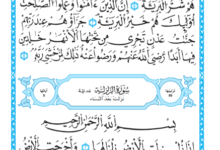 هُمْ شَرُّ ٱلْبَرِيَّةِ ۝ إِنَّ ٱلَّذِينَ ءَامَنُوا۟ وَعَمِلُوا۟ ٱلصَّٰلِحَٰتِ
أُو۟لَٰٓئِكَ هُمْ خَيْرُ ٱلْبَرِيَّةِ ۝ جَزَآؤُهُمْ عِندَ رَبِّهِمْ
جَنَّٰتُ عَدْنٍ تَجْرِى مِن تَحْتِهَا ٱلْأَنْهَٰرُ خَٰلِدِينَ
فِيهَآ أَبَدًا رَّضِىَ ٱللَّهُ عَنْهُمْ وَرَضُوا۟ عَنْهُ ذَٰلِكَ لِمَنْ خَشِىَ رَبَّهُۥ
سُورَةُ الزلزلة
نزلت بعد النساء
بِسْمِ ٱللَّهِ ٱلرَّحْمَٰنِ ٱلرَّحِيمِ
إِذَا زُلْزِلَتِ ٱلْأَرْضُ زِلْزَالَهَا ۝ وَأَخْرَجَتِ ٱلْأَرْضُ